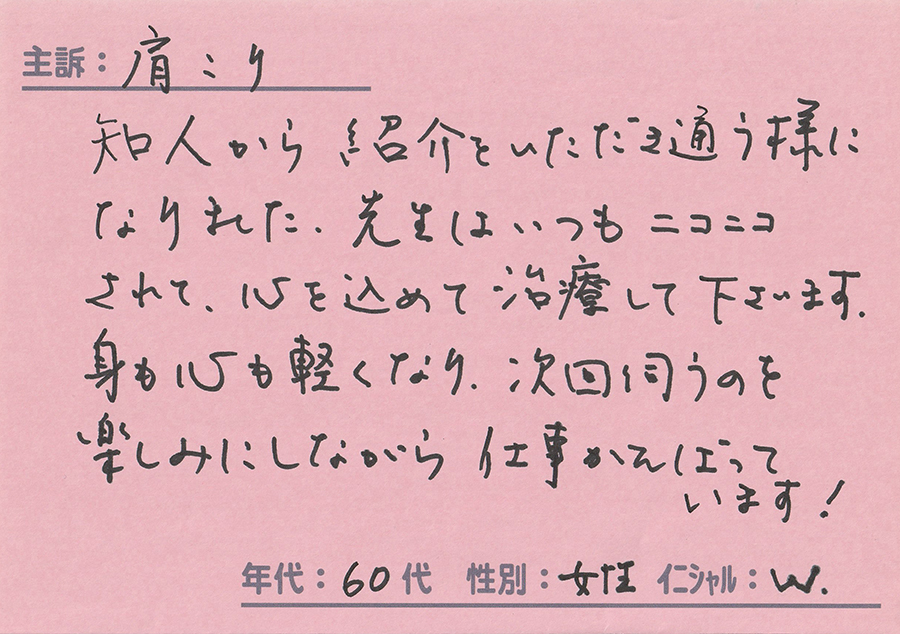 主訴：肩こり
知人から紹介をいただき通う様に
なりました、先生はいつもニコニコ
されて、心を込めて治療して下さいます。
身も心も軽くなり、次回伺うのを
楽しみにしながら仕事がんばって
います！
年代：60代 性別：女性 イニシャル：W.